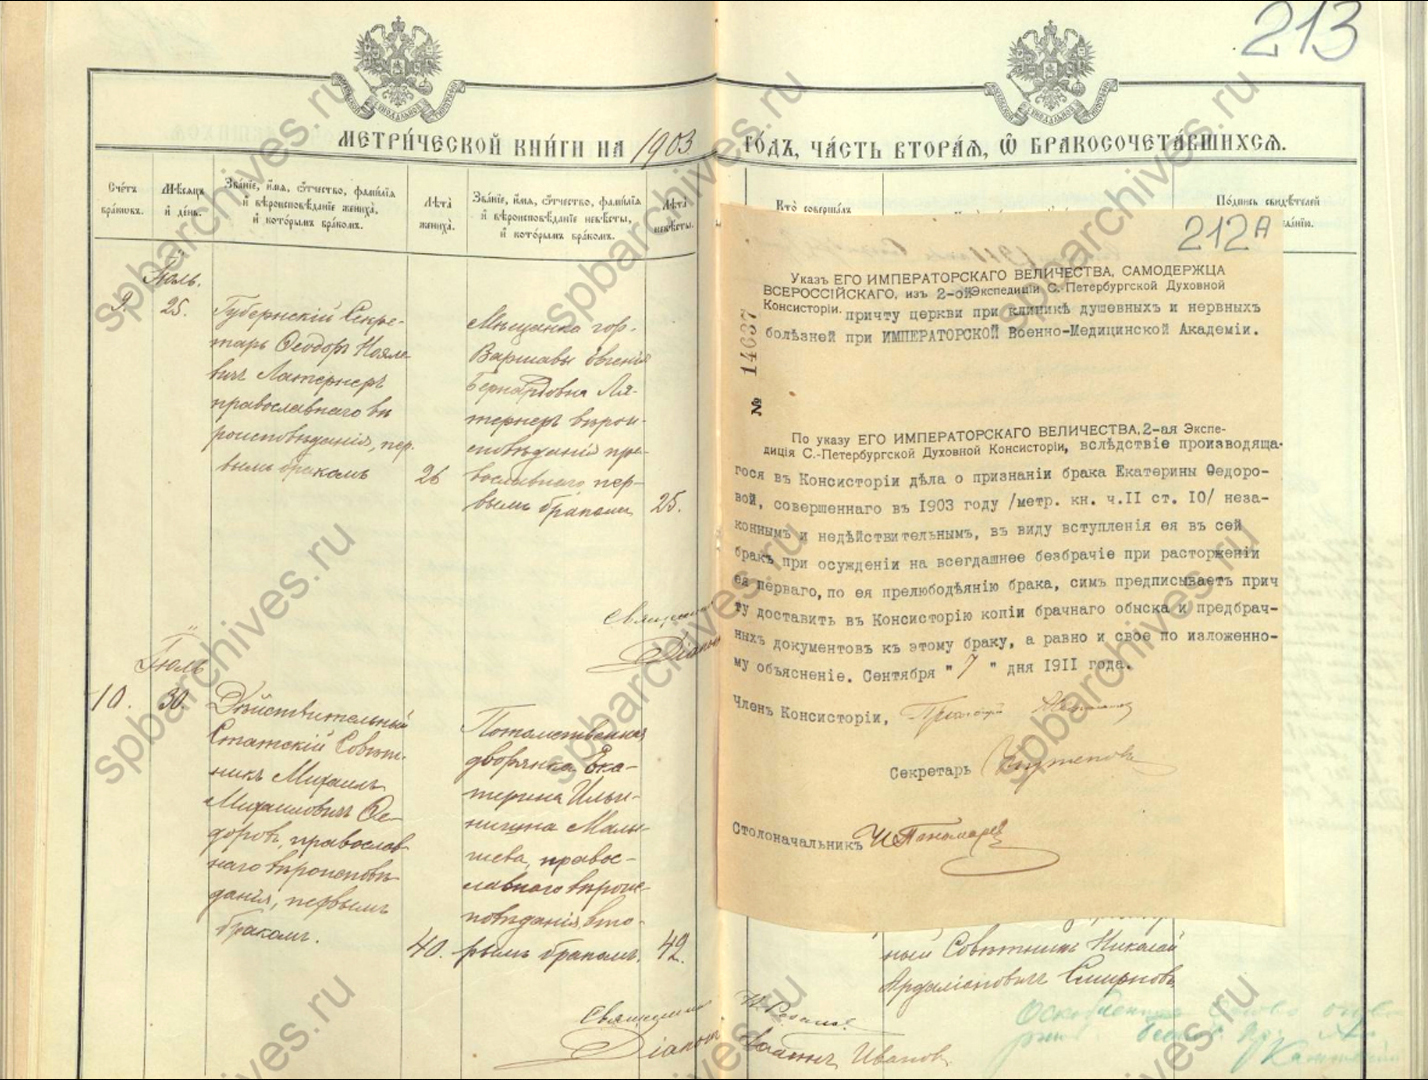 213
МЕТРИ́ЧЕСКОЙ КНИ́ГИ НА 1903 ГО́ДЪ, ЧА́СТЬ ВТОРА́Я, Ѡ҆ БРАКОСОЧЕТА́ВШИХСЯ.
Счетъ
браковъ.
Мѣсяцъ
и день.
Званіе, имя, отчество, фамилія
и вѣроисповѣданіе жениха,
и которымъ бракомъ.
Лѣта
жениха.
Званіе, имя, отчество, фамилія
и вѣроисповѣданіе невѣсты,
и которымъ бракомъ.
Лѣта
невѣсты.
Кто совершалъ
Подпись свидѣтелей
Іюль.
9. 25.
Губернскій Секре-
тарь Ѳеодоръ
вичъ Латернеръ
православнаго вѣ
роисповѣданія, пер.
вымъ бракомъ
26
Мѣщанка гор.
Варшавы Евгенія
Бернардовна Ля-
тернеръ вѣрои-
сповѣданія пра-
вославнаго пер-
вымъ бракомъ
25.
Священникъ
Іюль
10. 30.
Дѣйствительный
Статскій Совѣт-
никъ Михаилъ
Михаиловичъ Ѳе-
доровъ, православ-
наго вѣроисповѣ-
данія, первымъ
бракомъ.
40.
Потомственная
дворянка Ека-
терина Ильи-
нична Малы-
шева, право-
славнаго вѣроис-
повѣданія, вто-
рымъ бракомъ.
42.
Священникъ
212А
№ 14637
Указъ ЕГО ИМПЕРАТОРСКАГО ВЕЛИЧЕСТВА, САМОДЕРЖЦА
ВСЕРОССІЙСКАГО, изъ 2-ой Экспедиціи С.-Петербургской Духовной
Консисторіи. причту церкви при клиникѣ душевныхъ и нервныхъ
болѣзней при ИМПЕРАТОРСКОЙ Военно-Медицинской Академіи.
По указу ЕГО ИМПЕРАТОРСКАГО ВЕЛИЧЕСТВА, 2-ая Экспе-
диція С.-Петербургской Духовной Консисторіи, вслѣдствіе производяща-
гося въ Консисторіи дѣла о признаніи брака Екатерины Ѳедоро-
вой, совершеннаго въ 1903 году /метр. кн. ч.II ст. 10/ неза-
коннымъ и недѣйствительнымъ, въ виду вступленія ея въ сей
бракъ при осужденіи на всегдашнее безбрачіе при расторженіи
ея перваго, по ея прелюбодѣянію брака, симъ предписываетъ прич
ту доставить въ Консисторію копіи брачнаго обыска и предбрач-
ныхъ документовъ къ этому браку, а равно и свое по изложенно-
му объясненіе. Сентября "7" дня 1911 года.
Членъ Консисторіи,
Секретарь
Столоначальникъ И Пономарев
ный Совѣтникъ Николай
Ардаліоновичъ Смирновъ
Иванов
spbarchives.ru
spbarchives.ru
spbarchives.ru
spbarchives.ru
spbarchives.ru
spbarchives.ru
spbarchives.ru
spbarchives.ru
spbarchives.ru